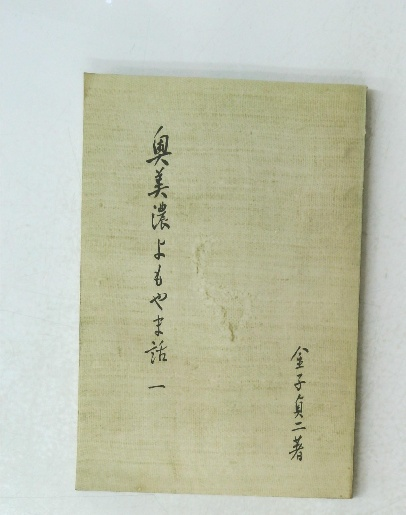 奥美濃よもやま話 一
金子貞二著